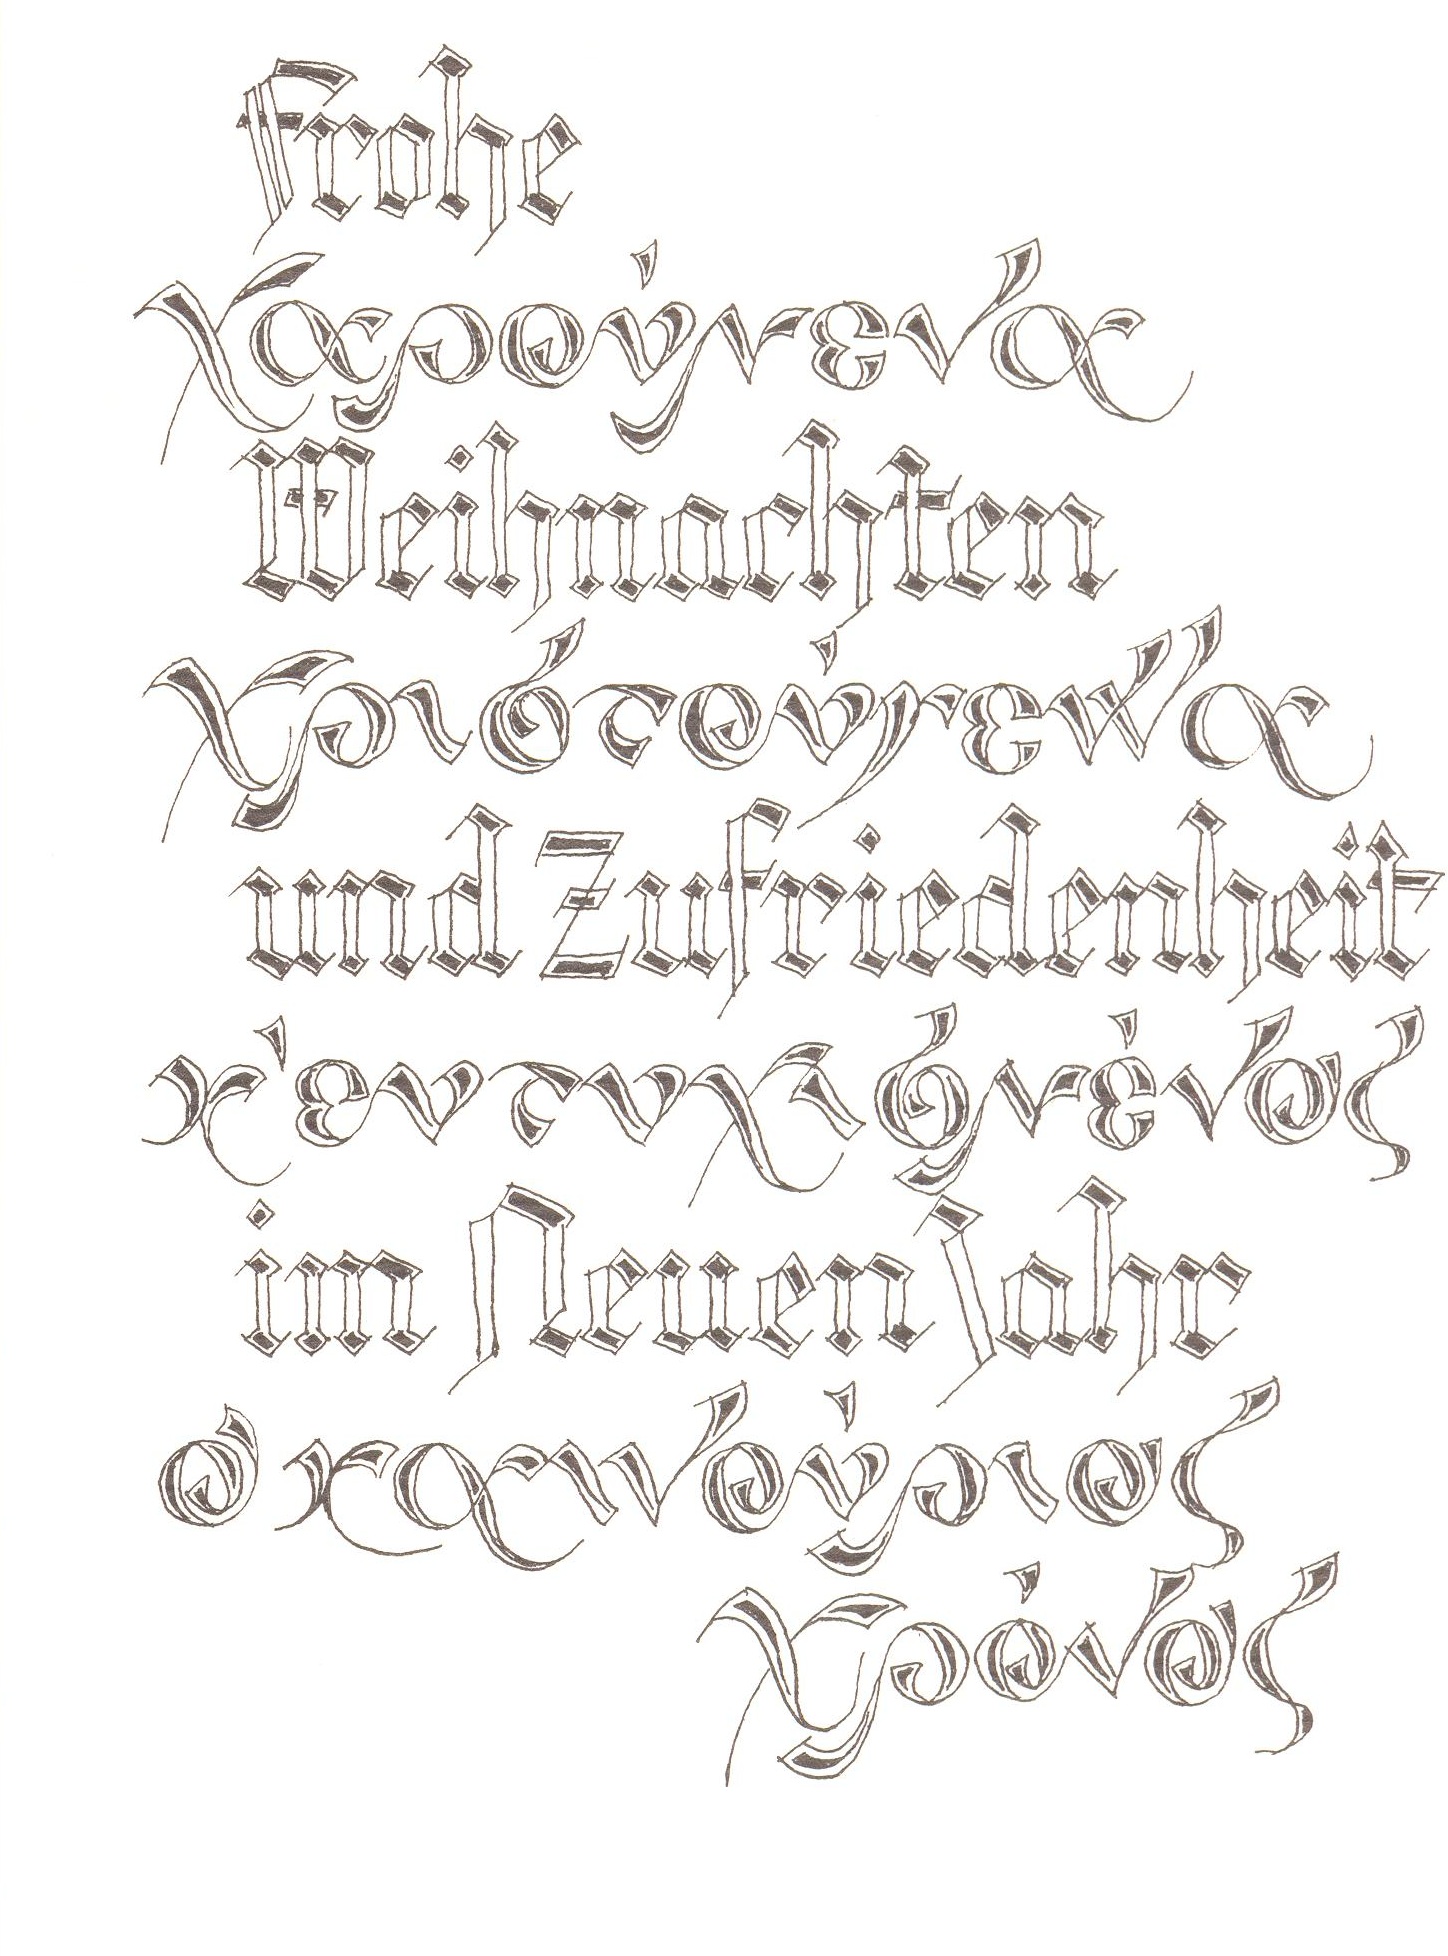 Frohe
χαρούμενα
Weihnachten
χριστούγεννα
und Zufriedenheit
κ' ευτυχισμένος
im Neuen Jahr
ο καινούριος
χρόνος